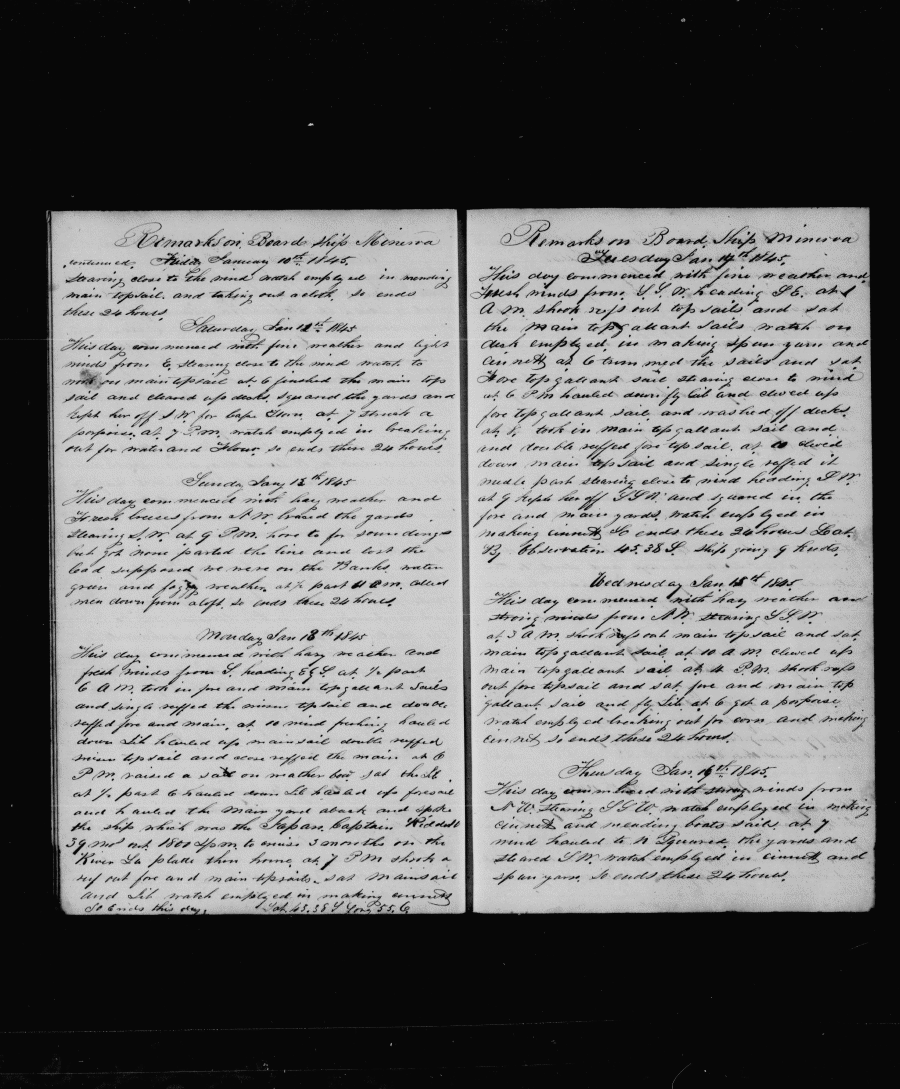 Remarks on Board Ship Minerva
continued. Friday January 10th 1845.
Stearing close to the wind watch employed in mending
main topsail. and taking out a cloth, so ends
these 24 hours.
Saturday Jan 12th 1845
This day commenced with fine weather and light
winds from E, stearing close to the wind watch to
work on main topsail at 6 finished the main top
sail and cleared up decks. squared the yards and
kept her off S W for Cape Horn. at 7 struck a
porpoise. at 7 P.M. watch employed in breaking
out for water and Flour. so ends these 24 hours.
Sunday Jany 13th 1845
This day commenced with hazy weather and
Fresh breeses from N. W. braced the yards
stearing S. W. at 9 P.M. hove to for soundings
but got none parted the line and lost the
lead supposed we were on the Banks. water
green and foggy weather. at ½ past 11 a m. called
men down from aloft. so ends these 24 hours.
Monday Jan 13th 1845
This day commenced with hazy weather and
fresh winds from S. heading E by S. at ½ past
6 A M. took in fore and main topgallant sails
and single reffed the mizen topsail and double
reffed fore and main. at 10 wind freshing hauled
down Jib hauled up mainsail double reffed
mizen topsail and close reffed the main at 6
P M. raised a sail on weather bow sat the Jib.
at ½ past 6 hauled down Jib hauled up foresail
and hauled the main yard aback and spoke
the ship which was the Japan, Captain Riddell
39 mos out. 1800 sperm to cruise 3 months on the
River La plate then home. at 7 P M shook a
ref out fore and main topsails. sat mainsail
and Jib watch employed in making cinnet
So Ends this day. Lat 45.38 S Long 55. E
Remarks on Board Ship Minerva
Tuesday Jan 14th 1845.
This day commenced with fine weather and
Fresh winds from S. S. W. heading S E. at 1
A M. shook refs out topsails and sat
the main topgallant sails watch on
deck employed in making spun yarn and
cinnet, at 6 trimmed the sails and sat
Fore topgallant sail stearing close to wind
at 6 P M hauled down fly Jib and clewed up
fore topgallant sail, and washed off decks.
at 8. took in main topgallant sail and
and double reffed fore topsail. at 10 clewed
down main topsail and single reffed it
middle part stearing close to wind heading S W.
at 9 kept her off S S W. and squared in the
fore and main yards. watch employed in
making cinnet, So ends these 24 hours Lat.
By Observation 45.38 S. ship going 9 knots.
Wednesday Jan 15th 1845
This day commenced with hazy weather and
strong winds from N W. stearing S S. W
at 3 A M. shook refs out main topsail and sat
main topgallant sail at 10 A M. clewed up
main topgallant sail at 4 P. M. shook refs
out fore topsail and sat fore and main top
gallant sail and fly Jib at 6 got a porpoise
watch employed breaking out for corn and making
cinnet, so ends these 24 hours.
Thursday Jan. 16th 1845.
This day commenced with strong winds from
N W. stearing S S W watch employed in making
cinnet and mending boats sails. at 7
wind hauled to N Squared the yards and
steared S W. watch employed in cinnet and
spun yarn. So ends these 24 hours.